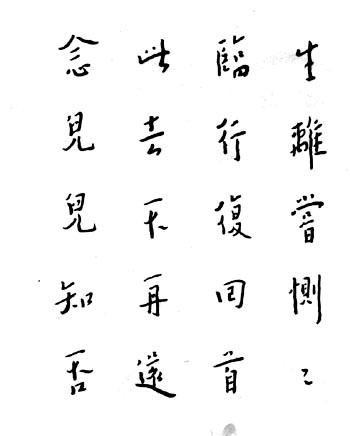 生離嘗惻〻
臨行復回首
此去不再還
念兒兒知否